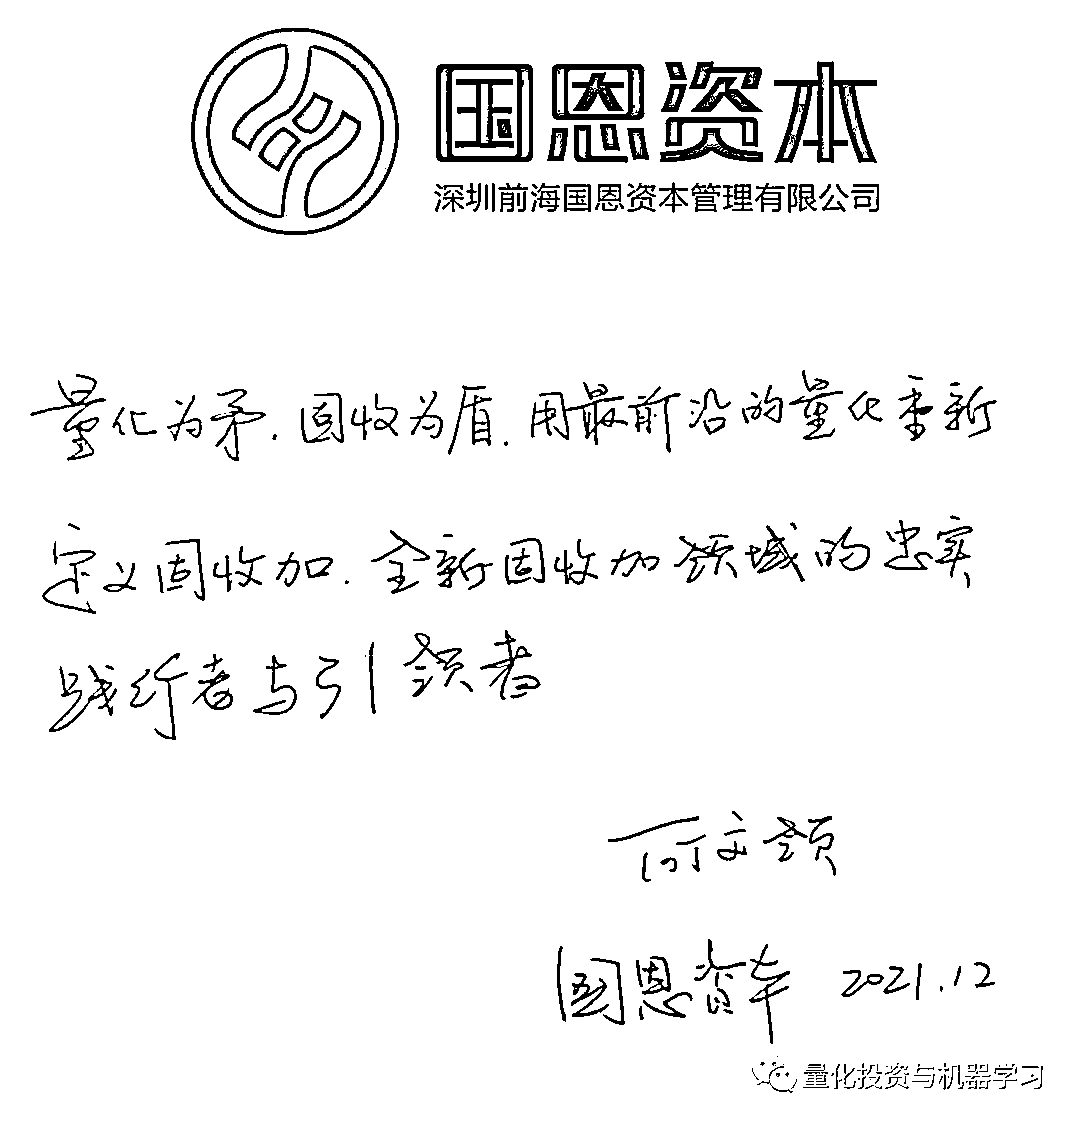 国恩资本
深圳前海国恩资本管理有限公司
量化为矛.固收为盾.用最前沿的量化重新
定义固收加.全新固收加领域的忠实
践行者与引领者
国恩资本 2021.12
量化投资与机器学习